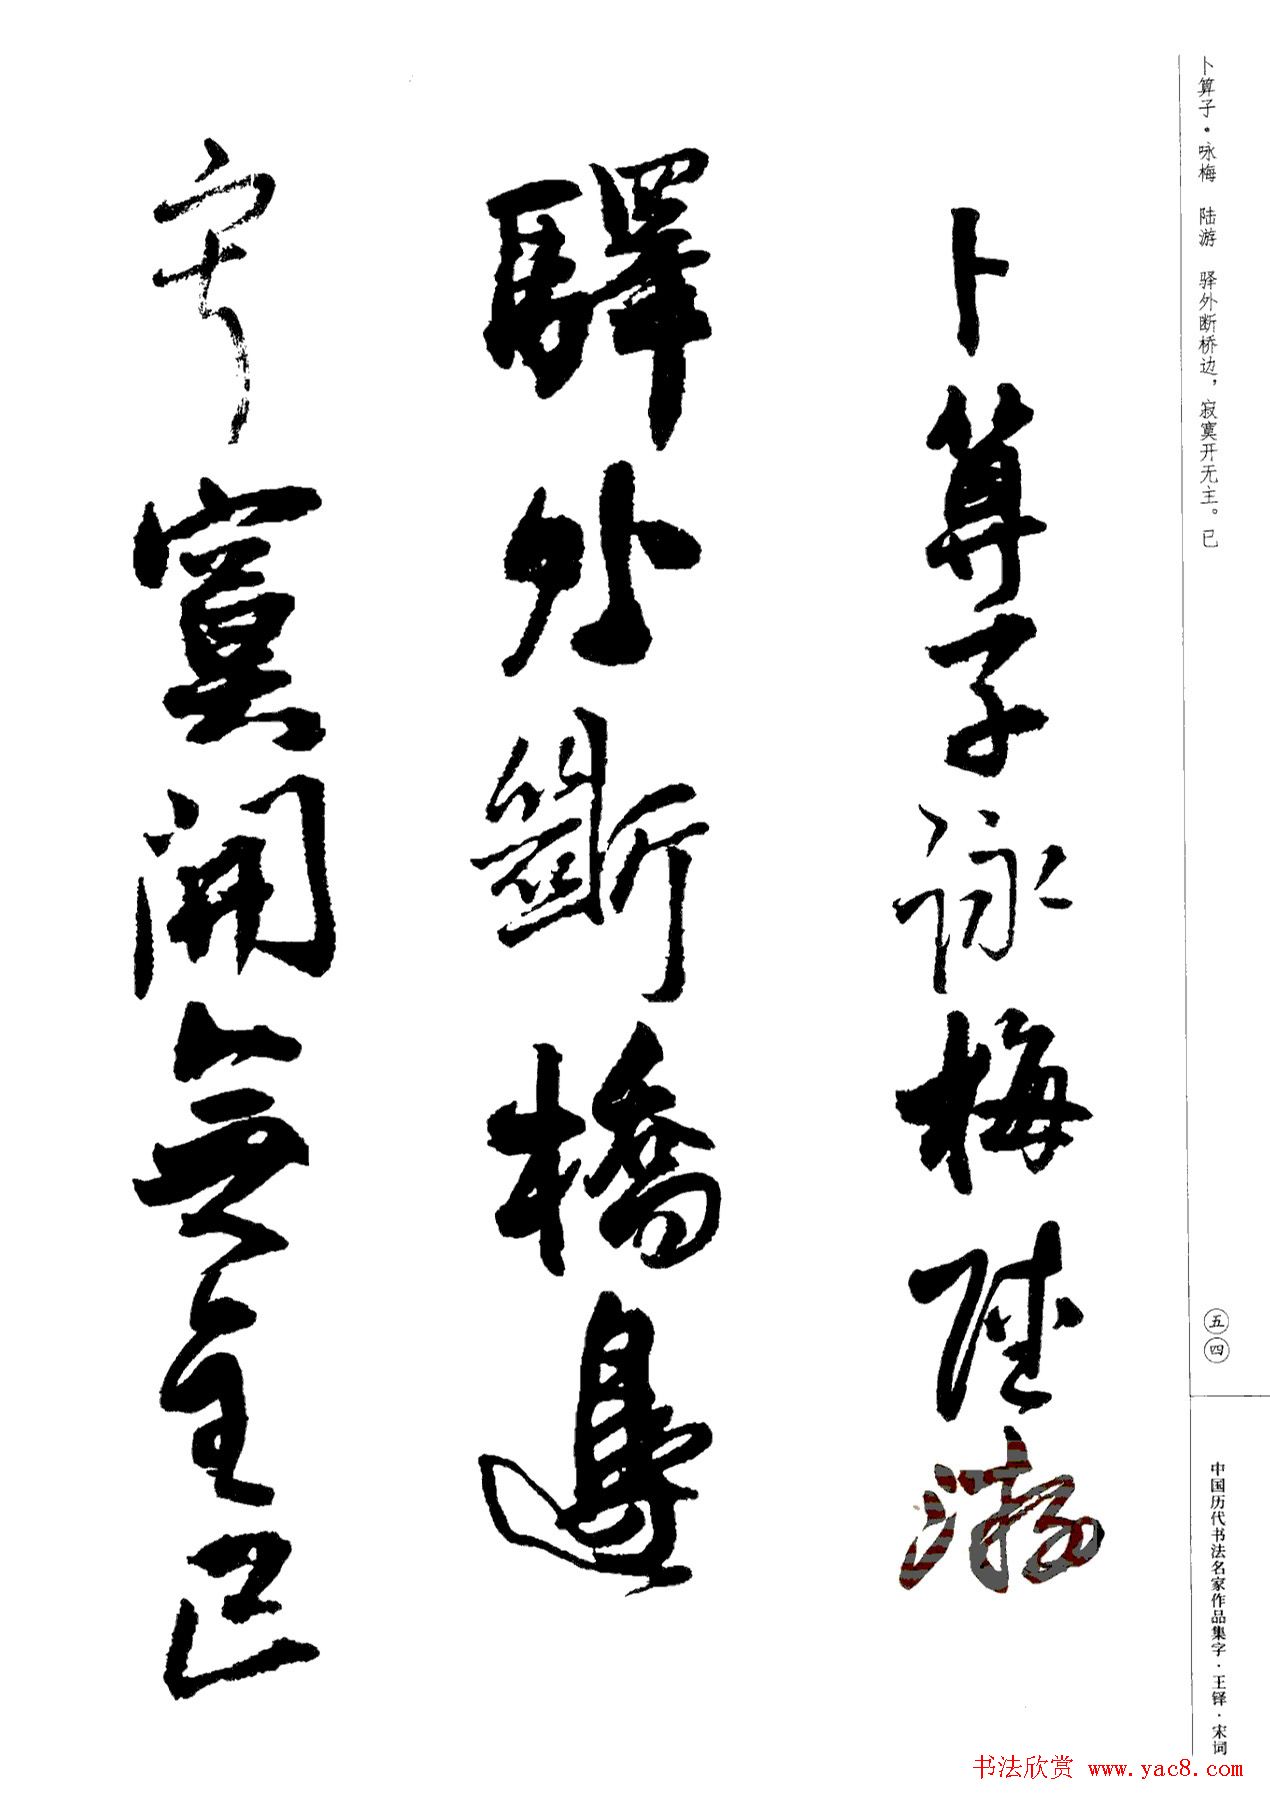 卜算子·咏梅　陆游　驿外断桥边，寂寞开无主。已
五四
中国历代书法名家作品集字·王铎·宋词
卜算子詠梅陸游
驛外斷橋邊
寂寞開無主已
书法欣赏 www.yac8.com